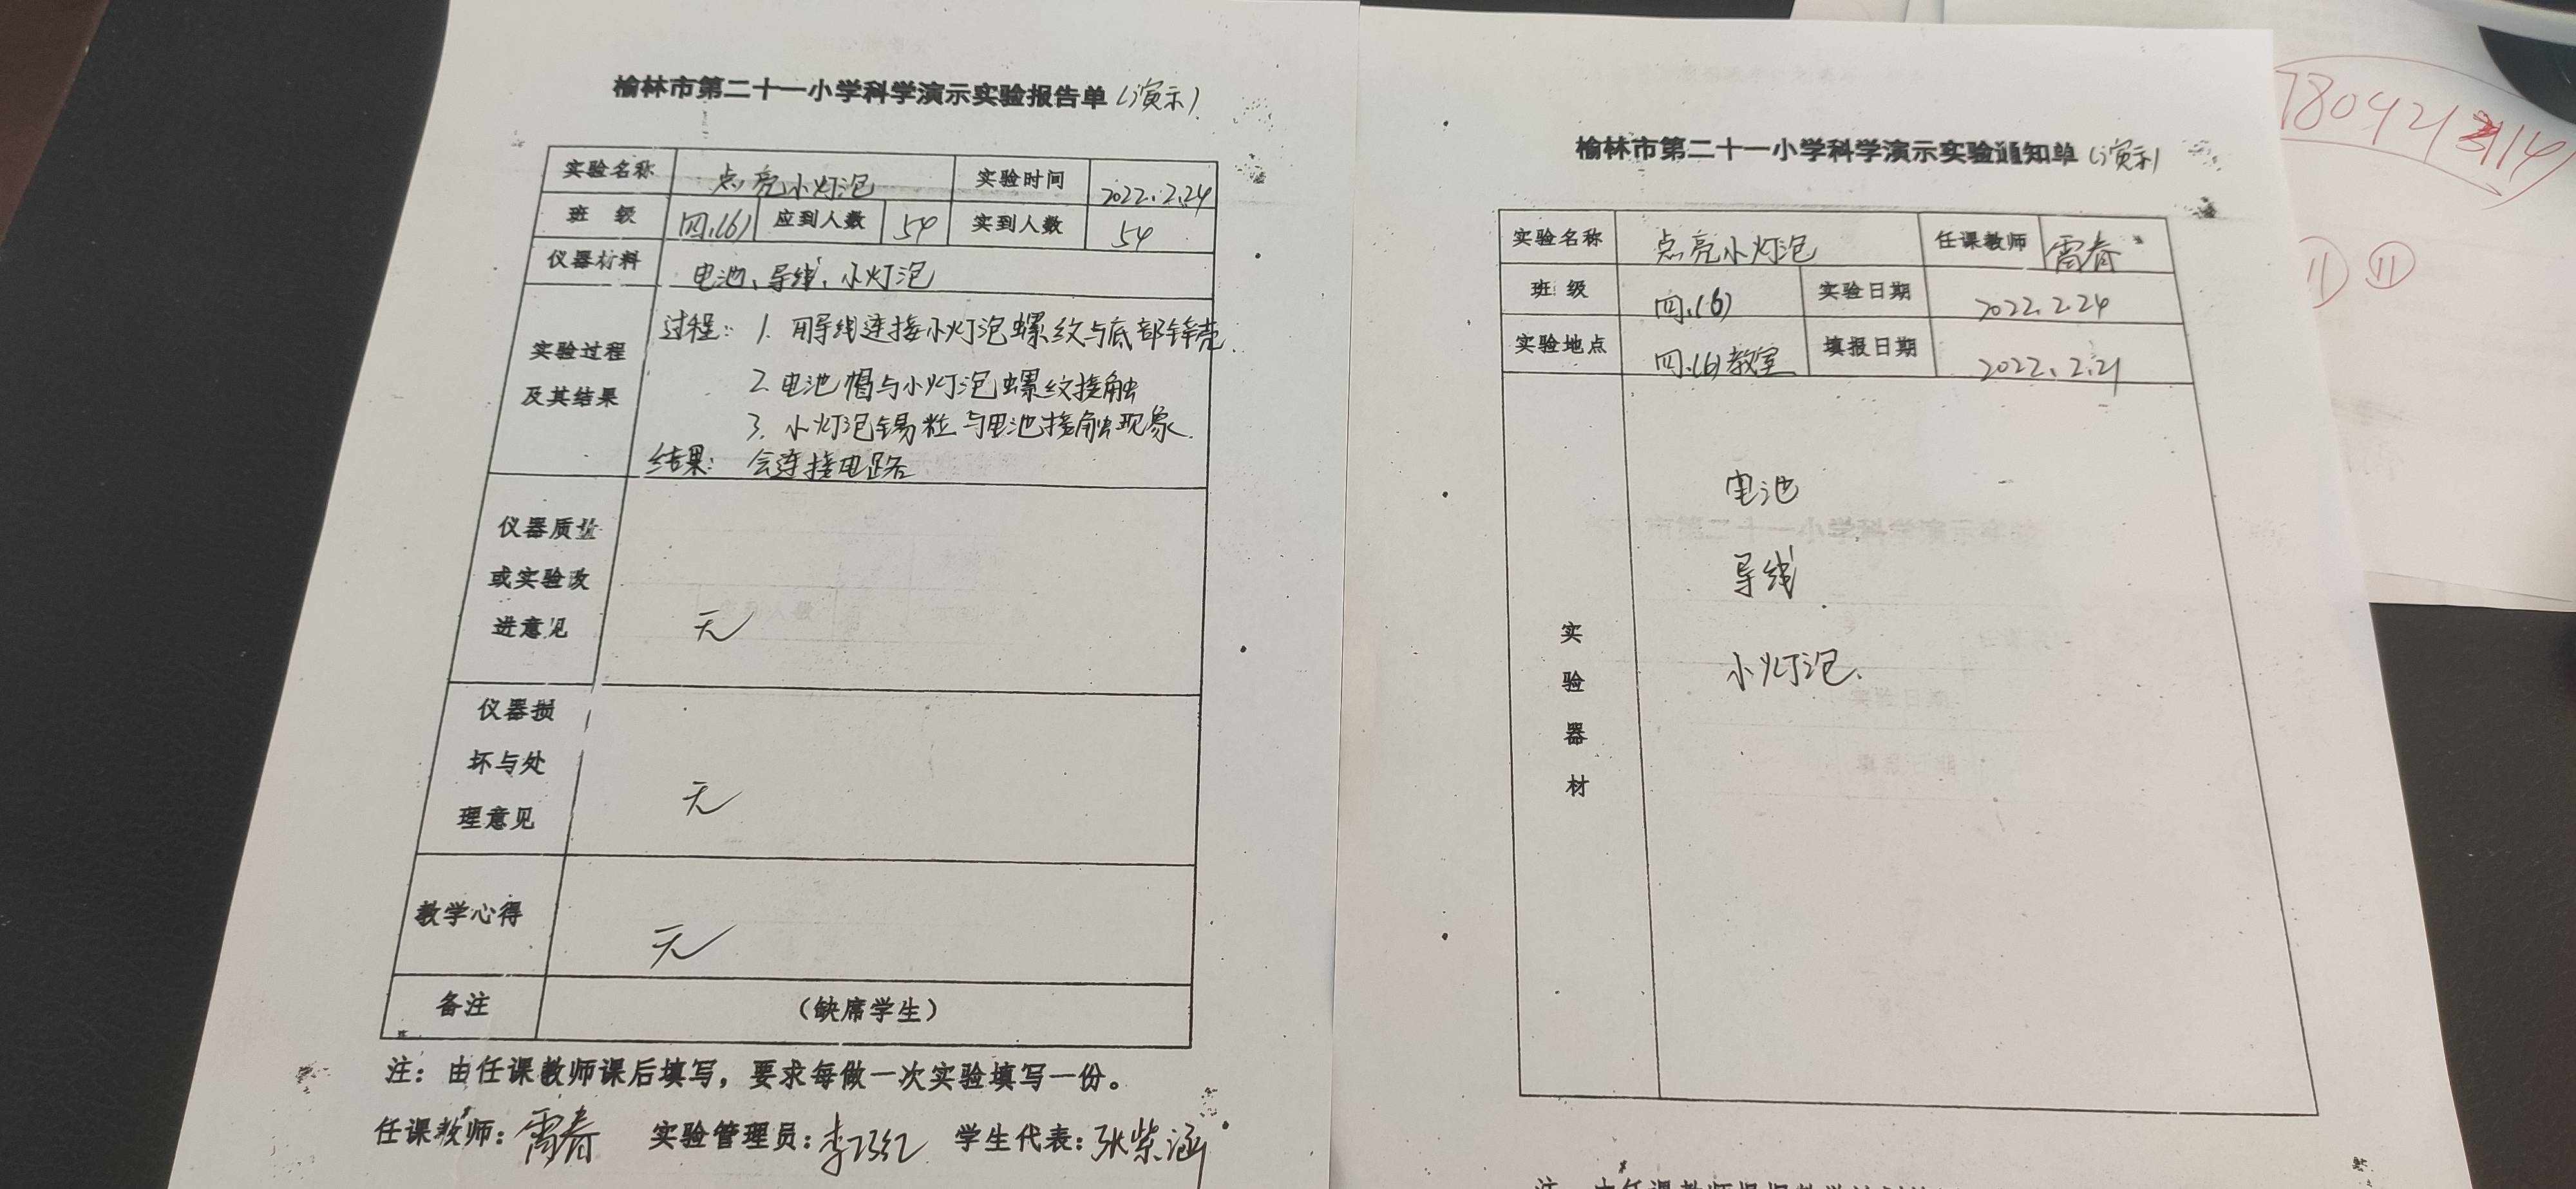 榆林市第二十一小学科学演示实验报告单(演示)
实验名称 点亮小灯泡 实验时间 2022.2.24
班 级 四.(6) 应到人数 54 实到人数 54
仪器材料 电池、导线、小灯泡
实验过程及其结果
过程: 1. 用导线连接小灯泡螺纹与底部锌壳.
2. 电池帽与小灯泡螺纹接触
3. 小灯泡锡粒与电池接触现象.
结果: 会连接电路
仪器质量
或实验改
进意见 无
仪器损
坏与处
理意见 无
教学心得 无
备注 (缺席学生)
注:由任课教师课后填写,要求每做一次实验填写一份。
任课教师: 雷春 实验管理员: 李巧红 学生代表: 张紫涵
榆林市第二十一小学科学演示实验通知单(演示)
实验名称 点亮小灯泡 任课教师 雷春
班 级 四.(6) 实验日期 2022.2.24
实验地点 四.(6)教室 填报日期 2022.2.21
实验器材
电池
导线
小灯泡.
⑪ ⑪